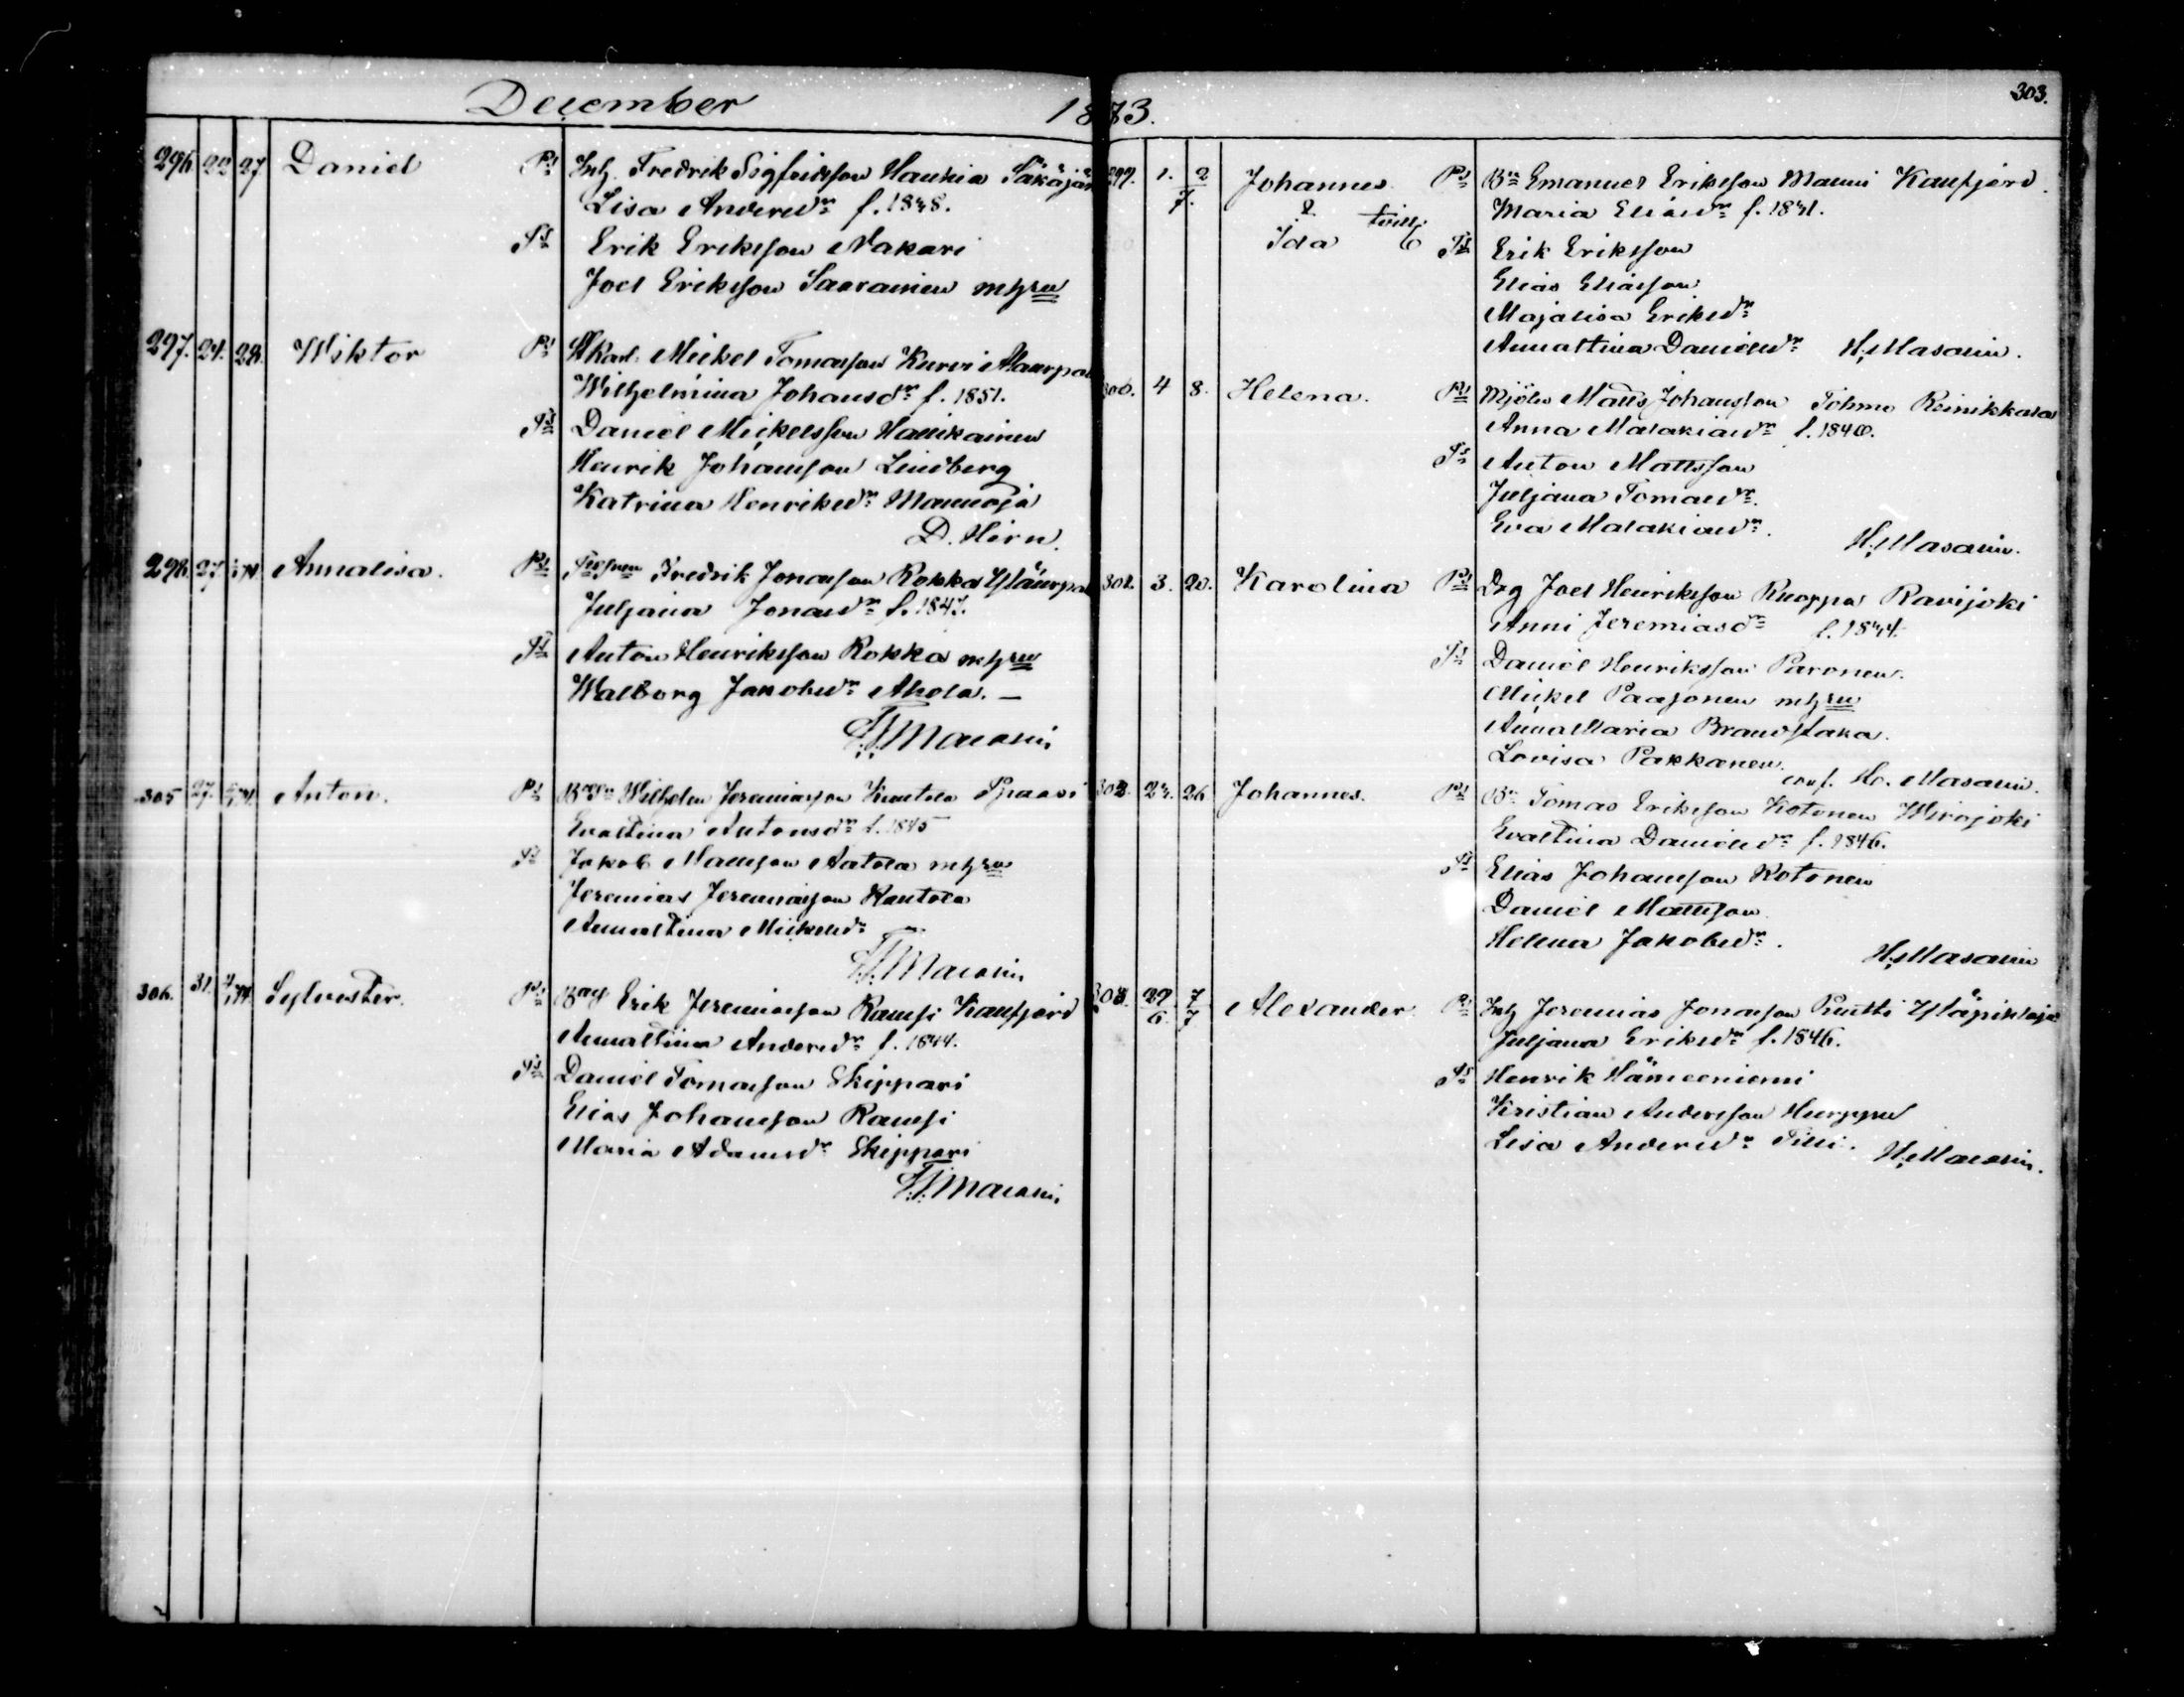 December 1873.
303.
296 22 27 Daniel Ps Inh. Fredrik Sigfridsson Hauhia Säkäjär
Lisa Andersdr f. 1848.
Ts Erik Eriksson Nakari
Joel Eriksson Saarainen m hru
297. 24. 28. Wiktor Ps Mickel Tomasson Kurvi
Wilhelmina Johansdr f. 1851.
Ts Daniel Mickelsson Haukainen
Henrik Johansson Lindberg
Katrina Henriksdr Mannoja
D. Hirn.
298. 27. Annalisa. Ps Fredrik Jonasson Rokka
Juljana Jonasdr f. 1847.
Ts Anton Henriksson Rokka m hru
Walborg Jakobsdr Ahola. —
Masonin
305 27. Anton. Ps Wilhelm Jeremiasson Kantola
Evastina Antonsdr f. 1845
Ts Jakob Mattsson Aatola m hru
Jeremias Jeremiasson Kantola
Annastina Mickelsdr
Masonin
306. 31. Sylvester. Ps Erik Jeremiasson Ramsi Kausjerd
Annastina Andersdr f. 1844.
Ts Daniel Tomasson Skippari
Elias Johansson Ramsi
Maria Adamsdr Skippari
Masonin
299. 1. 2/7. Johannes Ps Bn Emanuel Eriksson Mauni Kausjerd.
& tvill. Maria Eliasdr f. 1841.
Ida Ts Erik Eriksson
Elias Eliasson
Majalisa Eriksdr
Annastina Danielsdr H. Masonin.
300. 4 8. Helena. Ps Mjöln Matts Johansson Tohmo Reinikkala
Anna Malakiasdr f. 1840.
Ts Anton Mattsson
Juljana Tomasdr
Eva Malakiasdr.
H. Masonin.
3. 20. Karolina Ps Drg Joel Henriksson Kuoppa Ravijoki
Anni Jeremiasdr f. 1844.
Ts Daniel Henriksson Paronen.
Mickel Paajonen m hru
Anna Maria Brandstaka.
Lovisa Pakkanen.
conf. H. Masonin.
24. 26 Johannes. Ps Bn Tomas Eriksson Kotonen Wirojoki
Evastina Danielsdr f. 1846.
Ts Elias Johansson Kotonen
Daniel Mattsson
Helena Jakobsdr.
H. Masonin
29/6. 7/7 Alexander Ps Inh Jeremias Jonasson Pentti
Juljana Eriksdr f. 1846.
Ts Henrik Hämeeniemi
Kristian Andersson Hurppu
Lisa Andersdr Tilli. H. Masonin.